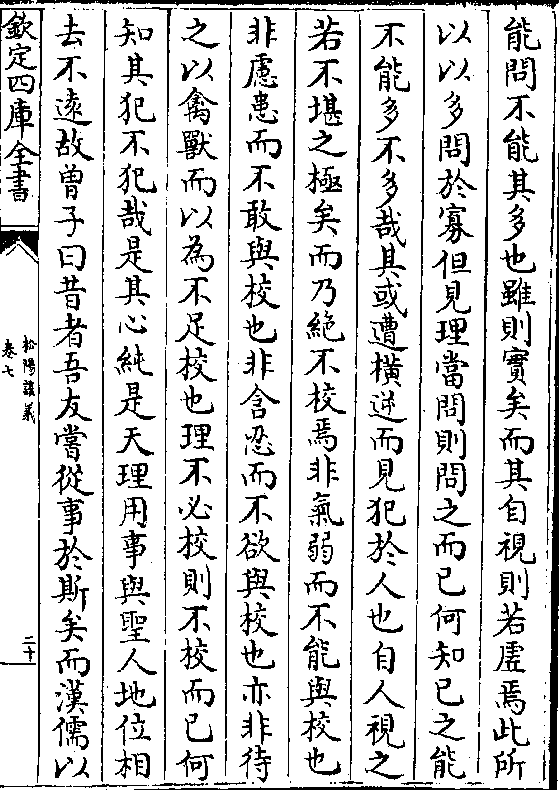 能問不能其多也雖則實矣而其自視則若虛焉此所
以以多問於寡但見理當問則問之而已何知已之能
不能多不多哉其或遭橫逆而見犯於人也自人視之
若不堪之極矣而乃絶不校焉非氣弱而不能與校也
非慮患而不敢與校也非含忍而不欲與校也亦非待
之以禽獸而以為不足校也理不必校則不校而已何
知其犯不犯哉是其心純是天理用事與聖人地位相
去不遠故曾子曰昔者吾友嘗從事於斯矣而漢儒以
欽定四庫全書
松陽講義
卷七
二十